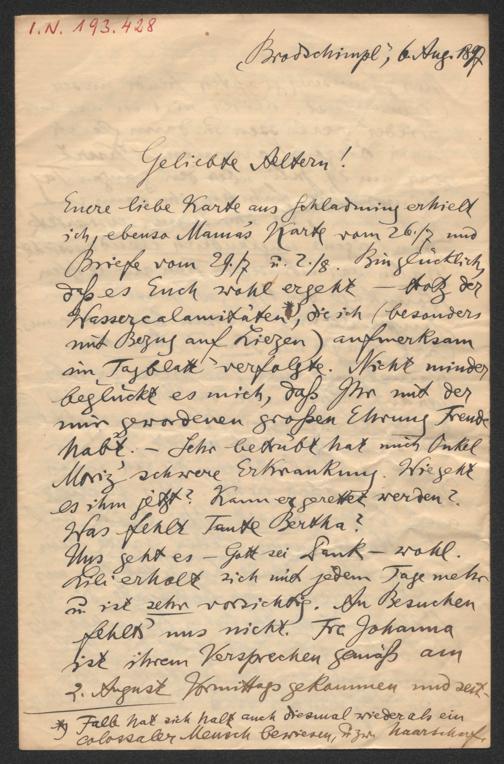 I.N. 193.428
„Brodschimpl", 6. Aug. 1897
Geliebte Aeltern!
Euere liebe Karte aus Schladming erhielt
ich, ebenso Mama's Karte vom 26./7 und
Briefe vom 29./7 u. 2./8. Bin glücklich,
daß es Euch wohl ergeht — trotz der
Wassercalamitäten*), die ich (besonders
mit Bezug auf Liezen) aufmerksam
im Tagblatt verfolgte. Nicht minder
beglückt es mich, daß Ihr mit der
mir gewordenen großen Ehrung Freude
habt. — Sehr betrübt hat mich Onkel
Moriz' schwere Erkrankung. Wie geht
es ihm jetzt? Kann er gerettet werden?
Was fehlt Tante Bertha?
Uns geht es — Gott sei Dank — wohl.
Lili erholt sich mit jedem Tage mehr
u. ist sehr vorsichtig. An Besuchen
fehlt's uns nicht. Frl. Johanna
ist ihrem Versprechen gemäß am
2. August Vormittags gekommen und seit-
*) Falb hat sich halt auch diesmal wieder als ein
colossaler Mensch bewiesen, u. zw. haarscharf.